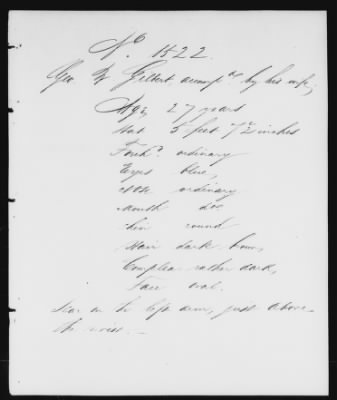 No 1522.
Geo W Gilbert, accompd by his wife;
Age, 27 years
Stat. 5 feet 7½ inches
Forehd. ordinary
Eyes blue,
Nose ordinary
Mouth do.
Chin round
Hair dark brown,
Complex rather dark,
Face oval.
Scar on the left arm, just above
the wrist. —